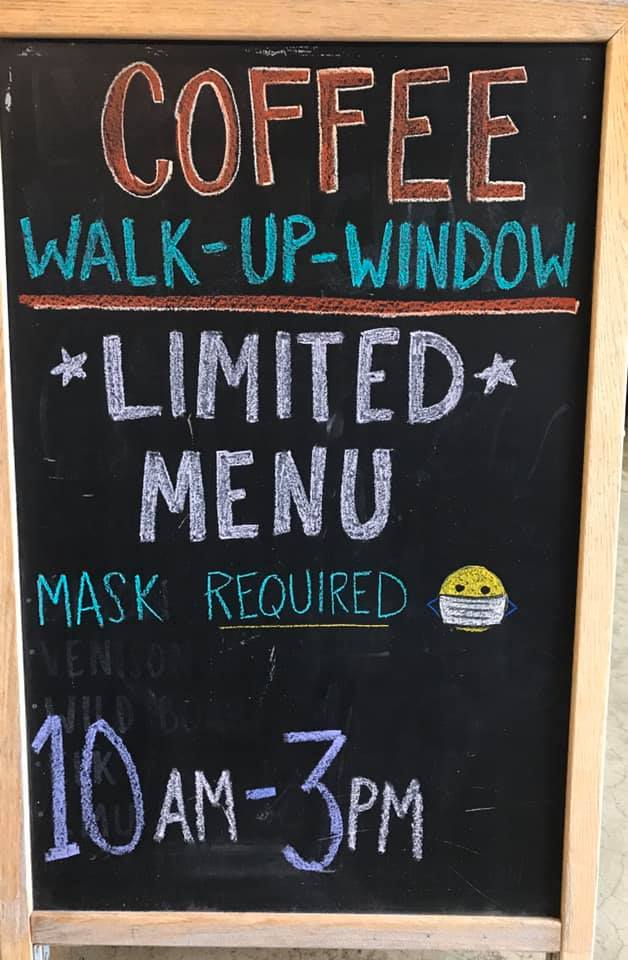 COFFEE
WALK-UP-WINDOW
*LIMITED*
MENU
MASK REQUIRED
VENISON
WILD
10AM-3PM